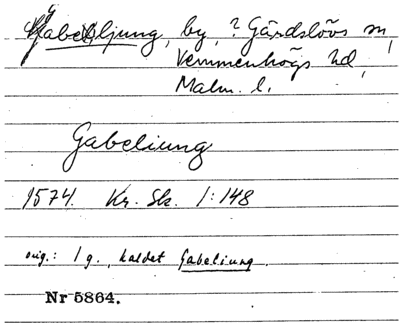 Gabeljung, by, ? Gärdslövs sn,
Vemmenhögs hd,
Malm. l.
Gabeliung
1574. Kr. Sk. 1:148
orig.: 1 g., kaldet Gabeliung.
Nr 5864.